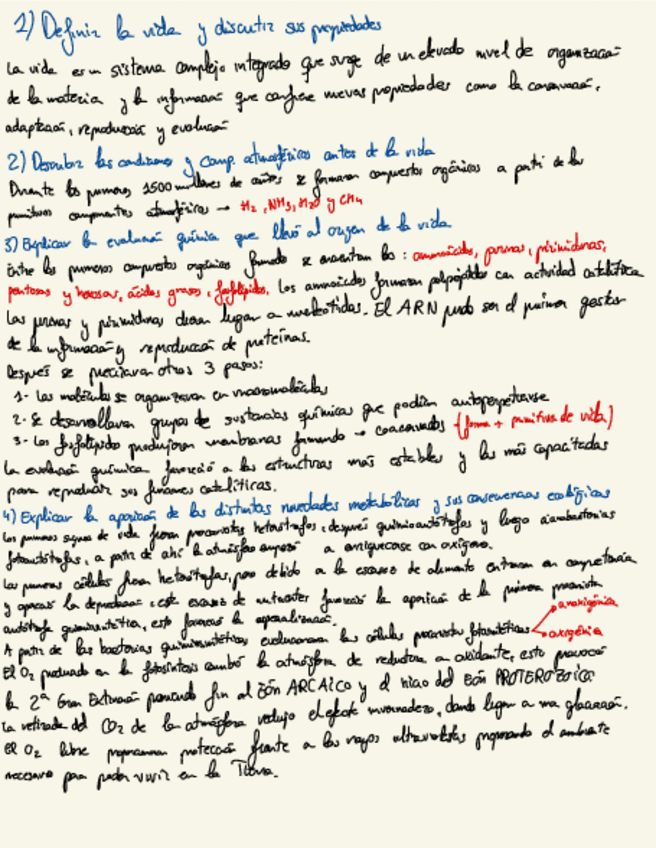 1) Definir la vida y discutir sus propiedades
La vida es un sistema complejo integrado que surge de un elevado nivel de organización
de la materia y la información que confiere nuevas propiedades como la conservación,
adaptación, reproducción y evolución
2) Describir las condiciones y comp. atmosféricos antes de la vida
Durante los primeros 1500 millones de años se formaron compuestos orgánicos a partir de los
primitivos componentes atmosféricos → H2, NH3, H2O y CH4
3) Explicar la evolución química que llevó al origen de la vida
Entre los primeros compuestos orgánicos formado se encuentran los: aminoácidos, purinas, pirimidinas,
pentosas y hexosas, ácidos grasos, fosfolípidos. Los aminoácidos formaron polipéptidos con actividad catalítica
Las purinas y pirimidinas dieron lugar a nucleótidos. El ARN pudo ser el primer gestor
de la información y reproducción de proteínas.
Después se precisaron otros 3 pasos:
1- Las moléculas se organizaron en macromoléculas
2- Se desarrollaron grupos de sustancias químicas que podían autoperpetuarse
3- Los fosfolípidos produjeron membranas formando → coacervados (forma + primitiva de vida)
La evolución química favoreció a las estructuras más estables y las más capacitadas
para reproducir sus funciones catalíticas.
4) Explicar la aparición de las distintas novedades metabólicas y sus consecuencias ecológicas
Los primeros signos de vida fueron procariotas heterótrofos, después quimioautótrofos y luego cianobacterias
fotoautótrofas, a partir de ahí la atmósfera empezó a enriquecerse con oxígeno.
Las primeras células fueron heterótrofas, pero debido a la escasez de alimento entraron en competencia
y apareció la depredación, este escasez de nutrientes favoreció la aparición de la primera procariota
autótrofa quimiosintética, esto favoreció la especialización.
A partir de las bacterias quimiosintéticas evolucionaron las células procariotas fotosintéticas
anoxigénica
oxigénica
El O2 producido en la fotosíntesis cambió la atmósfera de reductora a oxidante, esto provocó
la 2ª Gran Extinción poniendo fin al Eón ARCAICO y el inicio del Eón PROTEROZOICO
La retirada del CO2 de la atmósfera redujo el efecto invernadero, dando lugar a una glaciación.
El O2 libre proporcionan protección frente a los rayos ultravioletas preparando el ambiente
necesario para poder vivir en la Tierra.